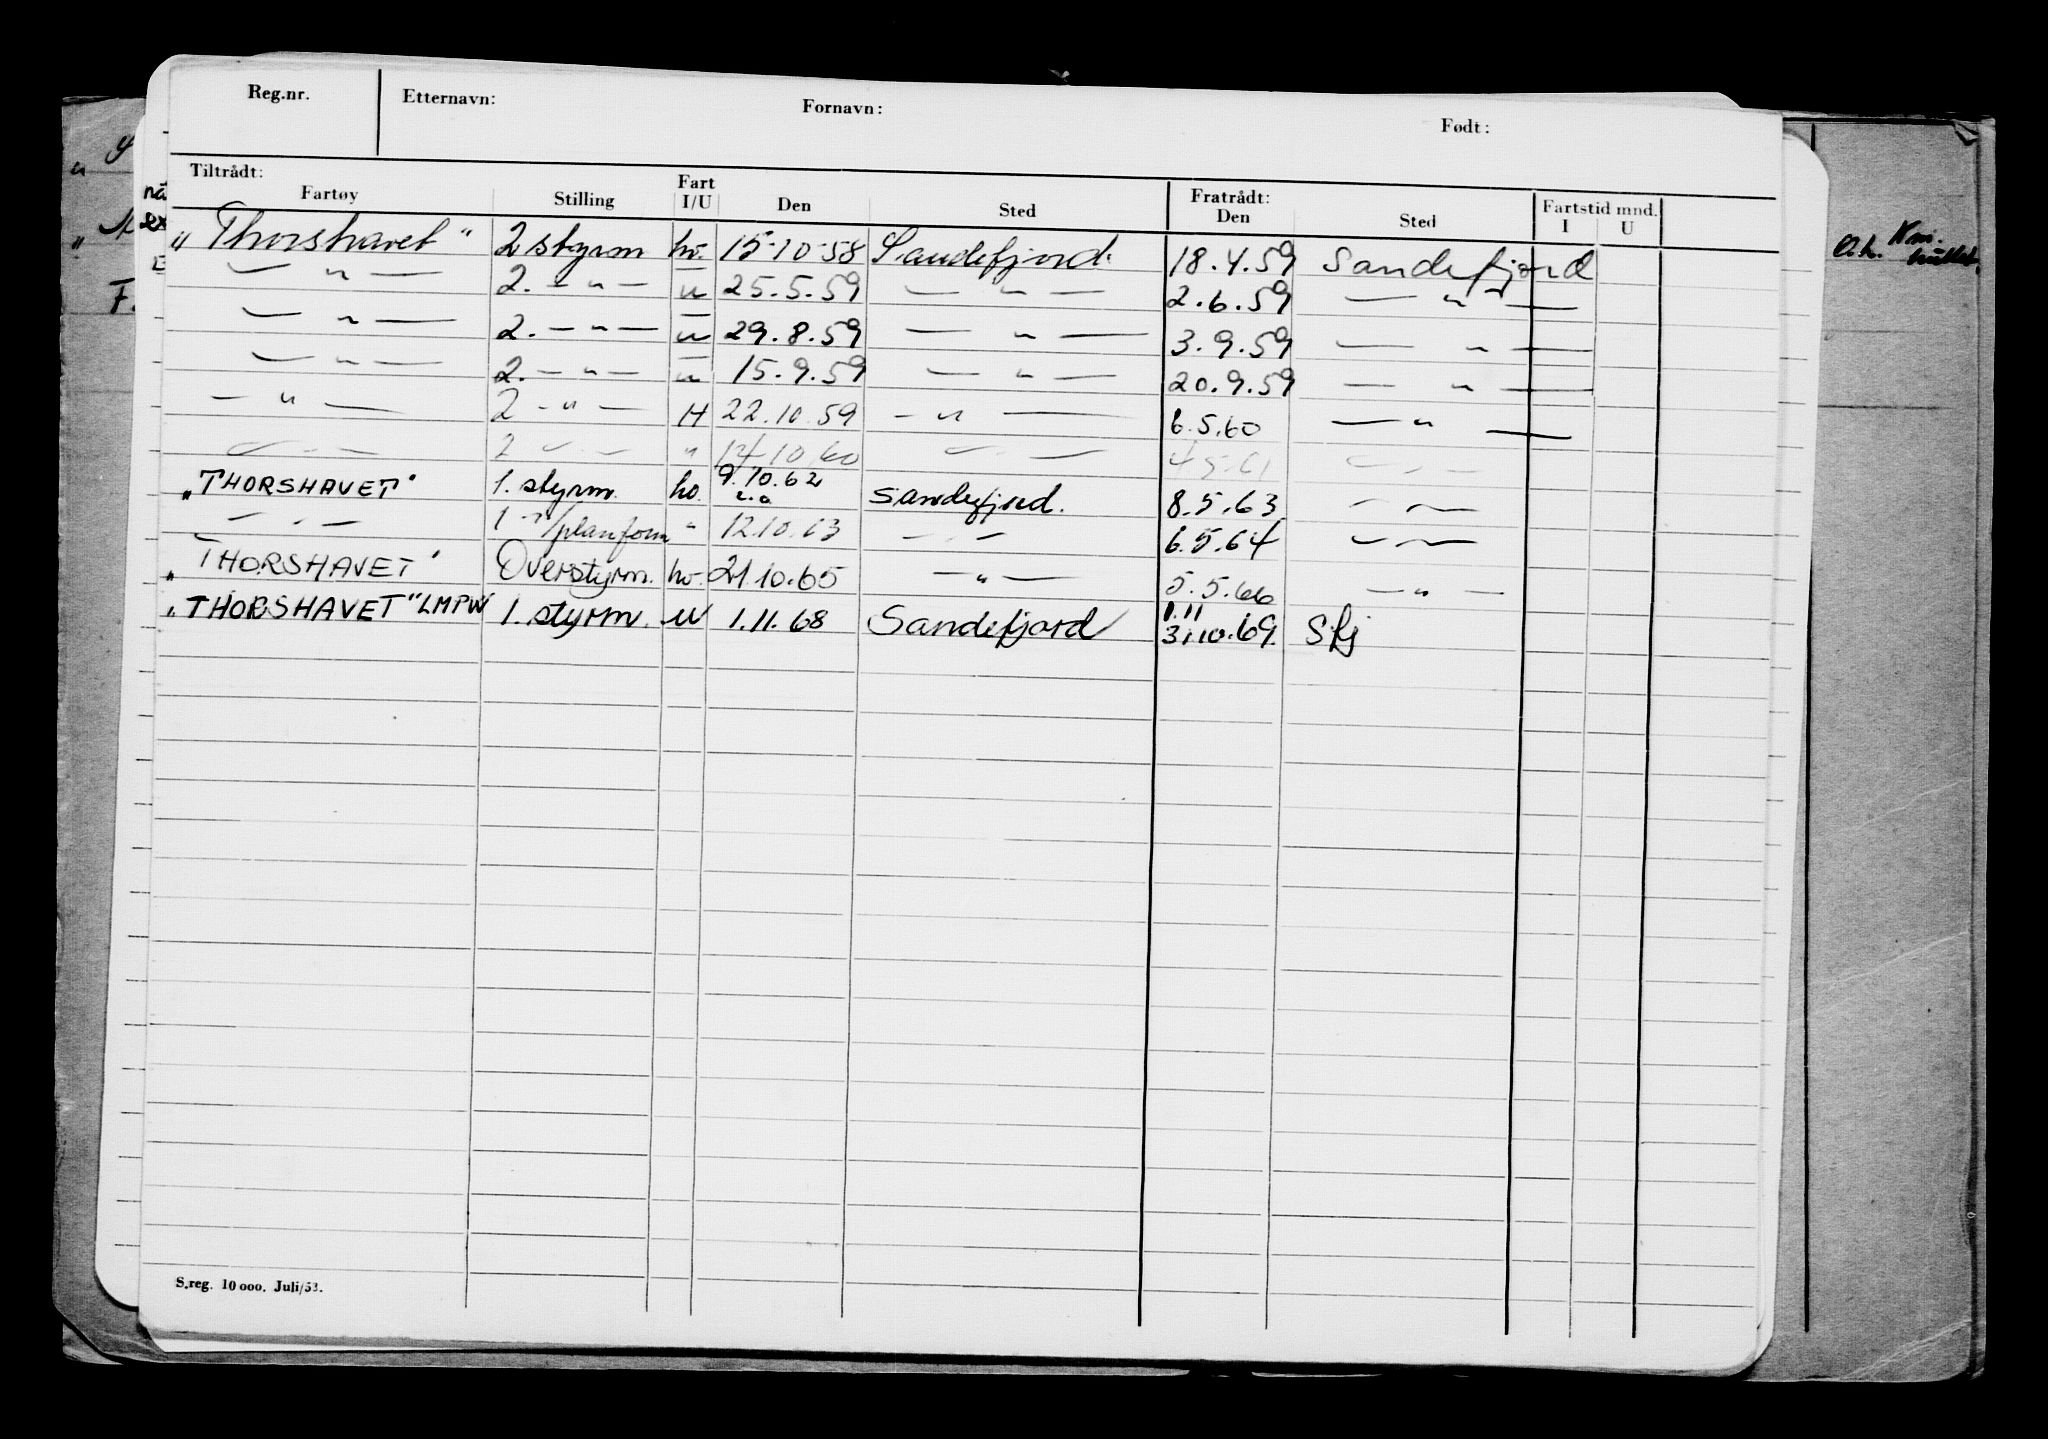 Reg.nr. Etternavn: Fornavn: Født:
Tiltrådt: Fratrådt:
Fartøy Stilling Fart I/U Den Sted Den Sted Fartstid mnd. I U
„Thorshavet" 2 styrm hv. 15-10-58 Sandefjord. 18.4.59 Sandefjord
— " — 2. — " — " 25.5.59 — " — 2.6.59 — " —
— " — 2. — " — " 29.8.59 — " — 3.9.59 — " —
— " — 2. — " — " 15.9.59 — " — 20.9.59 — " —
— " — 2 — " — H 22.10.59 — " — 6.5.60 — " —
— " — 2 — " — " 14.10.60 — " — 4.5.61 — " —
„THORSHAVET" 1. styrm. hv. 9.10.62 Sandefjord. 8.5.63 — " —
— " — 1 — "/planform " 12.10.63 — " — 6.5.64 — " —
„THORSHAVET" Overstyrm. hv. 21.10.65 — " — 5.5.66 — " —
„THORSHAVET" LMPW 1. styrm. U 1.11.68 Sandefjord 1.11 31.10.69. Sfj
S.reg. 10 000. Juli/53.
nå
F.